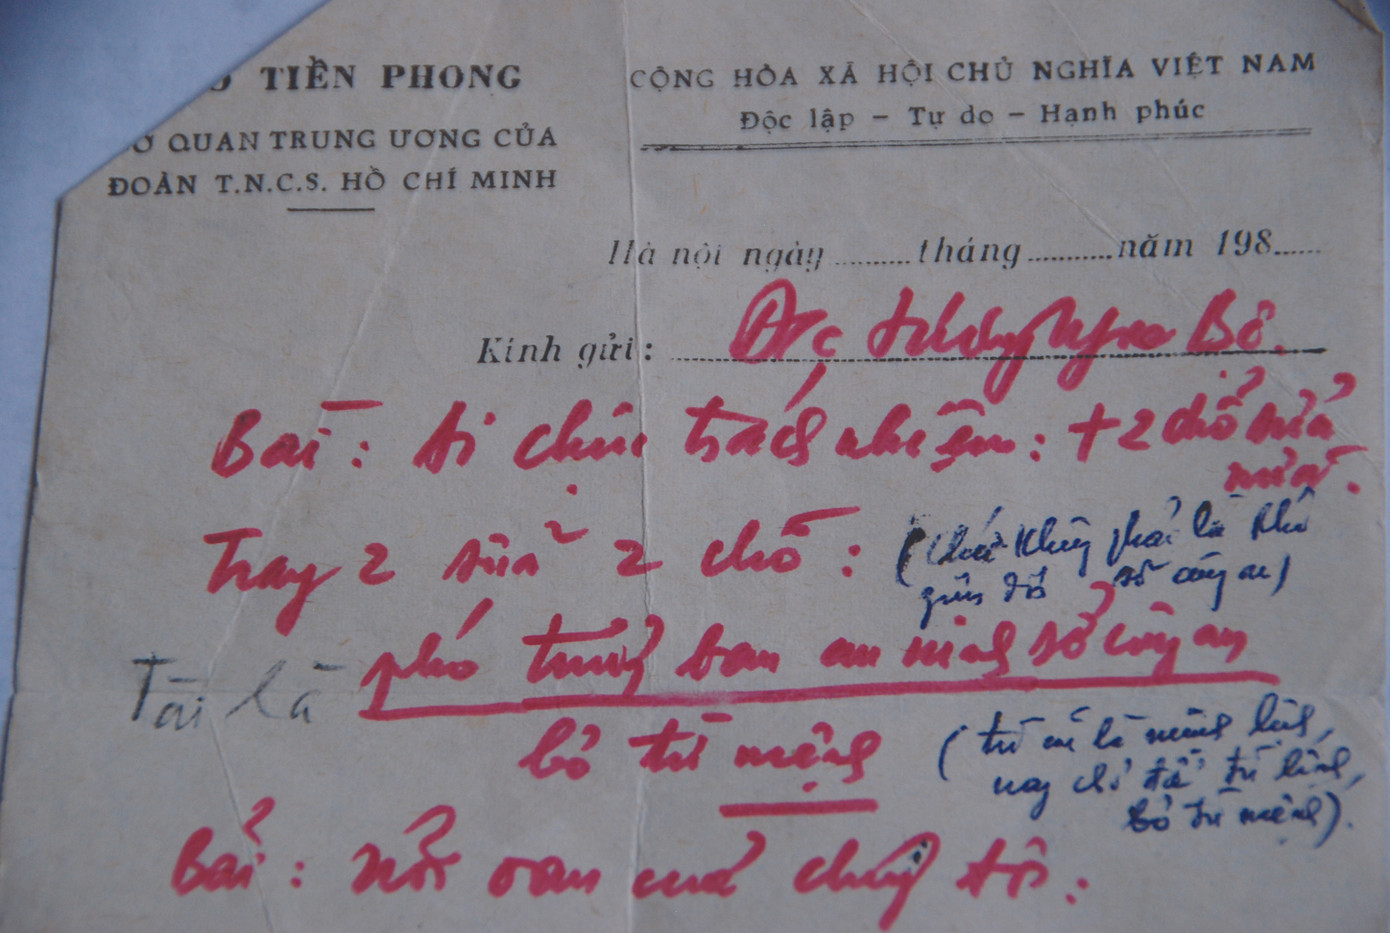 TIỀN PHONG
CỘNG HÒA XÃ HỘI CHỦ NGHĨA VIỆT NAM
QUAN TRUNG ƯƠNG CỦA
Độc lập - Tự do - Hạnh phúc
ĐOÀN T.N.C.S. HỒ CHÍ MINH
Hà nội ngày ......... tháng ......... năm 198......
Kính gửi: Bộ.
Bài: Ai chịu trách nhiệm: + 2 chỗ sửa
nữa.
Trang 2 sửa 2 chỗ:
(chứ không phải là phó
giám đốc sở công an)
Tài là phó trưởng ban an ninh sở công an
bỏ từ mệnh
(từ cũ là mệnh lệnh,
nay chỉ để từ lệnh,
bỏ từ mệnh).
Bài: nỗi oan của chúng tôi: